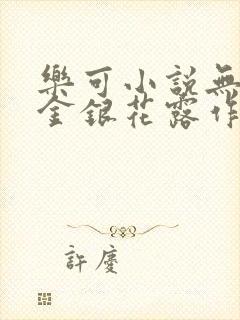 樂可小說無
金銀花露作
許慶